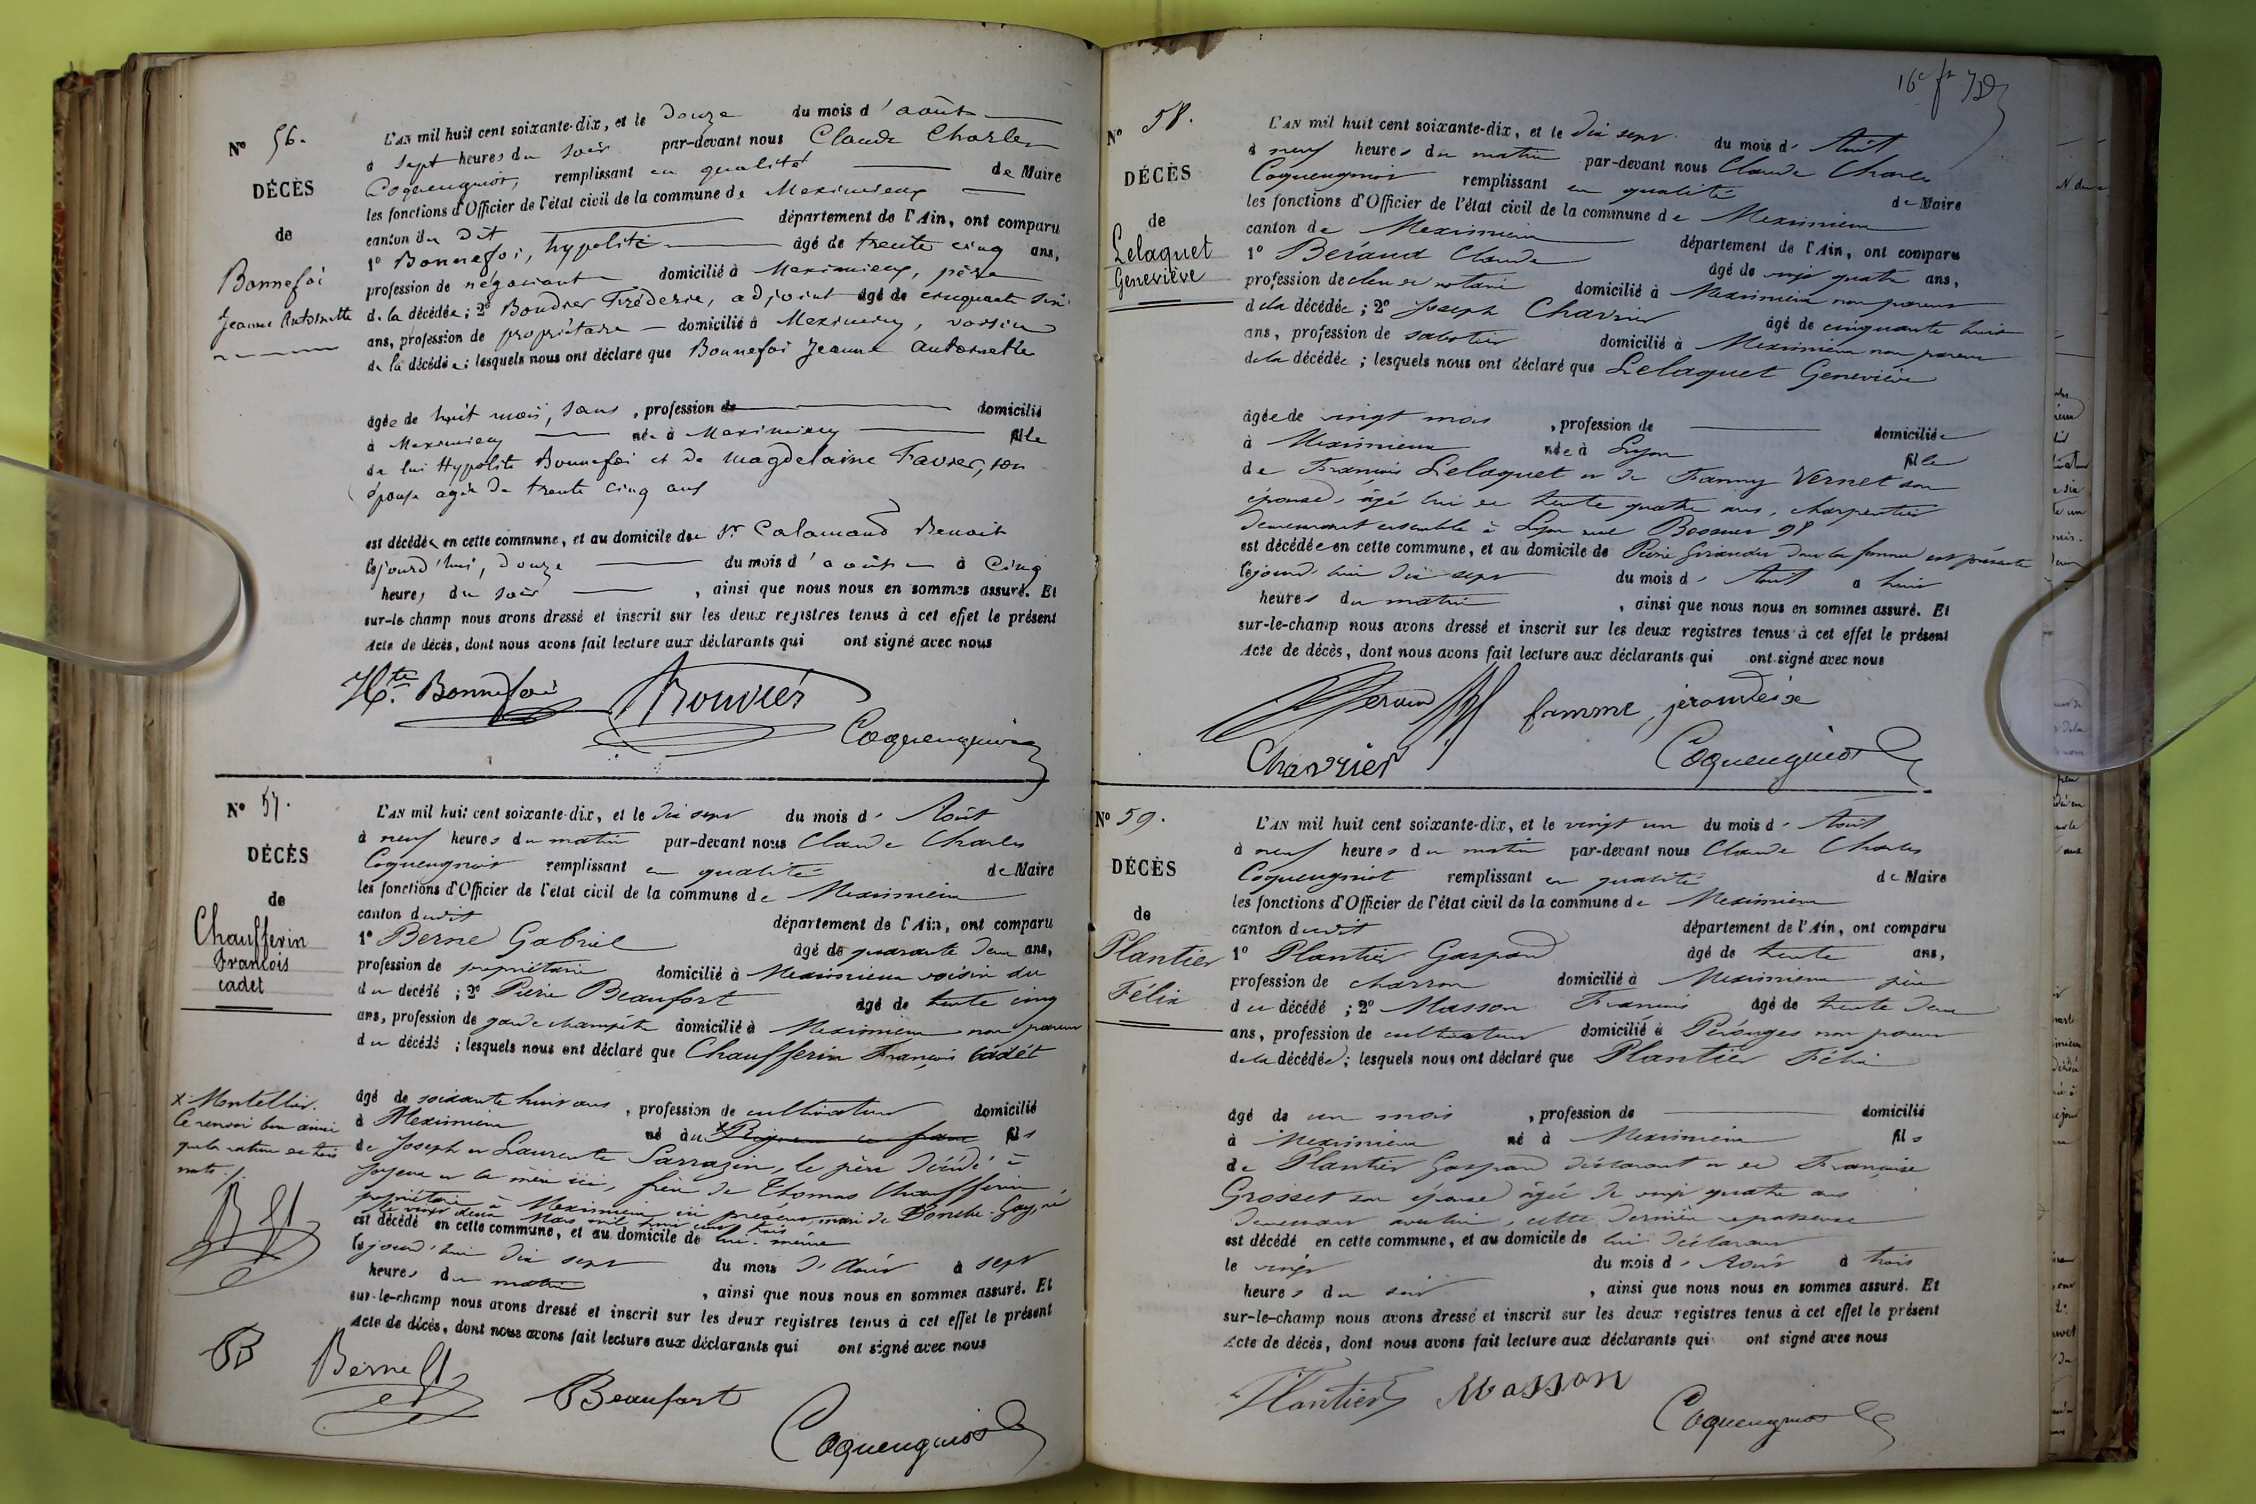 N° 56.
DÉCÈS
de
Bonnefoi
Jeanne Antoinette
L'AN mil huit cent soixante-dix, et le Douze du mois d'août
à sept heures du soir par-devant nous Claude Charles
Coquengniot, remplissant en qualité de Maire
les fonctions d'Officier de l'état civil de la commune de Meximieux
canton du Dit département de l'Ain, ont comparu
1° Bonnefoi, hypolite âgé de trente cinq ans,
profession de négociant domicilié à Meximieux, père
de la décédée; 2° Bouvier Fréderic, adjoint âgé de cinquante six
ans, profession de propriétaire domicilié à Meximieux, voisin
de la décédée; lesquels nous ont déclaré que Bonnefoi Jeanne Antoinette
âgée de huit mois, sans, profession de domicilié
à Meximieux née à Meximieux fille
de lui Hypolite Bonnefoi et de Magdelaine Favier, son
épouse agée de trente cinq ans
est décédée en cette commune, et au domicile de Sr Calamand Benoit
lejourd'hui, douze du mois d'août à Cinq
heures du soir, ainsi que nous nous en sommes assuré. Et
sur-le champ nous avons dressé et inscrit sur les deux registres tenus à cet effet le présent
Acte de décès, dont nous avons fait lecture aux déclarants qui ont signé avec nous
Hte Bonnefoi Bouvier
Coquengniot
N° 57.
DÉCÈS
de
Chaufferin
François
cadet
L'AN mil huit cent soixante-dix, et le dix sept du mois d'Août
à neuf heures du matin par-devant nous Claude Charles
Coquengniot remplissant en qualité de Maire
les fonctions d'Officier de l'état civil de la commune de Meximieux
canton dudit département de l'Ain, ont comparu
1° Berne Gabriel âgé de quarante deux ans,
profession de propriétaire domicilié à Meximieux voisin du
du décédé; 2° Pierre Beaufort âgé de trente cinq
ans, profession de garde champêtre domicilié à Meximieux non parent
du décédé; lesquels nous ont déclaré que Chaufferin François Cadet
âgé de soixante huit ans, profession de cultivateur domicilié
à Meximieux né à fils
de Joseph et Laurente Sarrazin, le père décédé à
Joyeux et la mère ici, frère de Thomas Chaufferin
propriétaire à Meximieux ici présent, mari de Gay, né
le vingt deux Mars mil huit cent trois
est décédé en cette commune, et au domicile de lui-même
lejourd'hui dix sept du mois d'Août à sept
heures du matin, ainsi que nous nous en sommes assuré. Et
sur-le-champ nous avons dressé et inscrit sur les deux registres tenus à cet effet le présent
Acte de décès, dont nous avons fait lecture aux déclarants qui ont signé avec nous
x Montellier.
Ce renvoi bon ainsi
que la rature de trois
mots
B Berne Beaufort
Coquengniot
N° 58.
DÉCÈS
de
Lelaquet
Geneviève
L'AN mil huit cent soixante-dix, et le dix sept du mois d'Août
à neuf heures du matin par-devant nous Claude Charles
Coquengniot remplissant en qualité de Maire
les fonctions d'Officier de l'état civil de la commune de Meximieux
canton de Meximieux département de l'Ain, ont comparu
1° Beraud Claude âgé de vingt quatre ans,
profession de clerc de notaire domicilié à Meximieux non parent
de la décédée; 2° Joseph Chavrier âgé de cinquante huit
ans, profession de sabotier domicilié à Meximieux non parent
de la décédée; lesquels nous ont déclaré que Lelaquet Geneviève
âgée de vingt mois, profession de domiciliée
à Meximieux née à Lyon fille
de François Lelaquet et de Fanny Vernet son
épouse, âgé lui de trente quatre ans, charpentier
demeurant ensemble à Lyon rue Bossuet 98
est décédée en cette commune, et au domicile de Pierre Giraudier dont la femme est présente
lejourd'hui dix sept du mois d'Août à huit
heures du matin, ainsi que nous nous en sommes assuré. Et
sur-le-champ nous avons dressé et inscrit sur les deux registres tenus à cet effet le présent
Acte de décès, dont nous avons fait lecture aux déclarants qui ont signé avec nous
Beraud famme jeroudeix
Chavrier Coquengniot
N° 59.
DÉCÈS
de
Plantier
Félix
L'AN mil huit cent soixante-dix, et le vingt un du mois d'Août
à neuf heures du matin par-devant nous Claude Charles
Coquengniot remplissant en qualité de Maire
les fonctions d'Officier de l'état civil de la commune de Meximieux
canton dudit département de l'Ain, ont comparu
1° Plantier Gaspard âgé de trente ans,
profession de charron domicilié à Meximieux père
du décédé; 2° Masson François âgé de trente deux
ans, profession de cultivateur domicilié à Pérouges non parent
de la décédée; lesquels nous ont déclaré que Plantier Félix
âgé de un mois, profession de domicilié
à Meximieux né à Meximieux fils
de Plantier Gaspard déclarant et de Françoise
Grosset son épouse âgée de vingt quatre ans
demeurant avec lui, cette dernière repasseuse
est décédé en cette commune, et au domicile de lui déclarant
le vingt du mois d'Août à trois
heures du soir, ainsi que nous nous en sommes assuré. Et
sur-le-champ nous avons dressé et inscrit sur les deux registres tenus à cet effet le présent
Acte de décès, dont nous avons fait lecture aux déclarants qui ont signé avec nous
Plantier Masson
Coquengniot